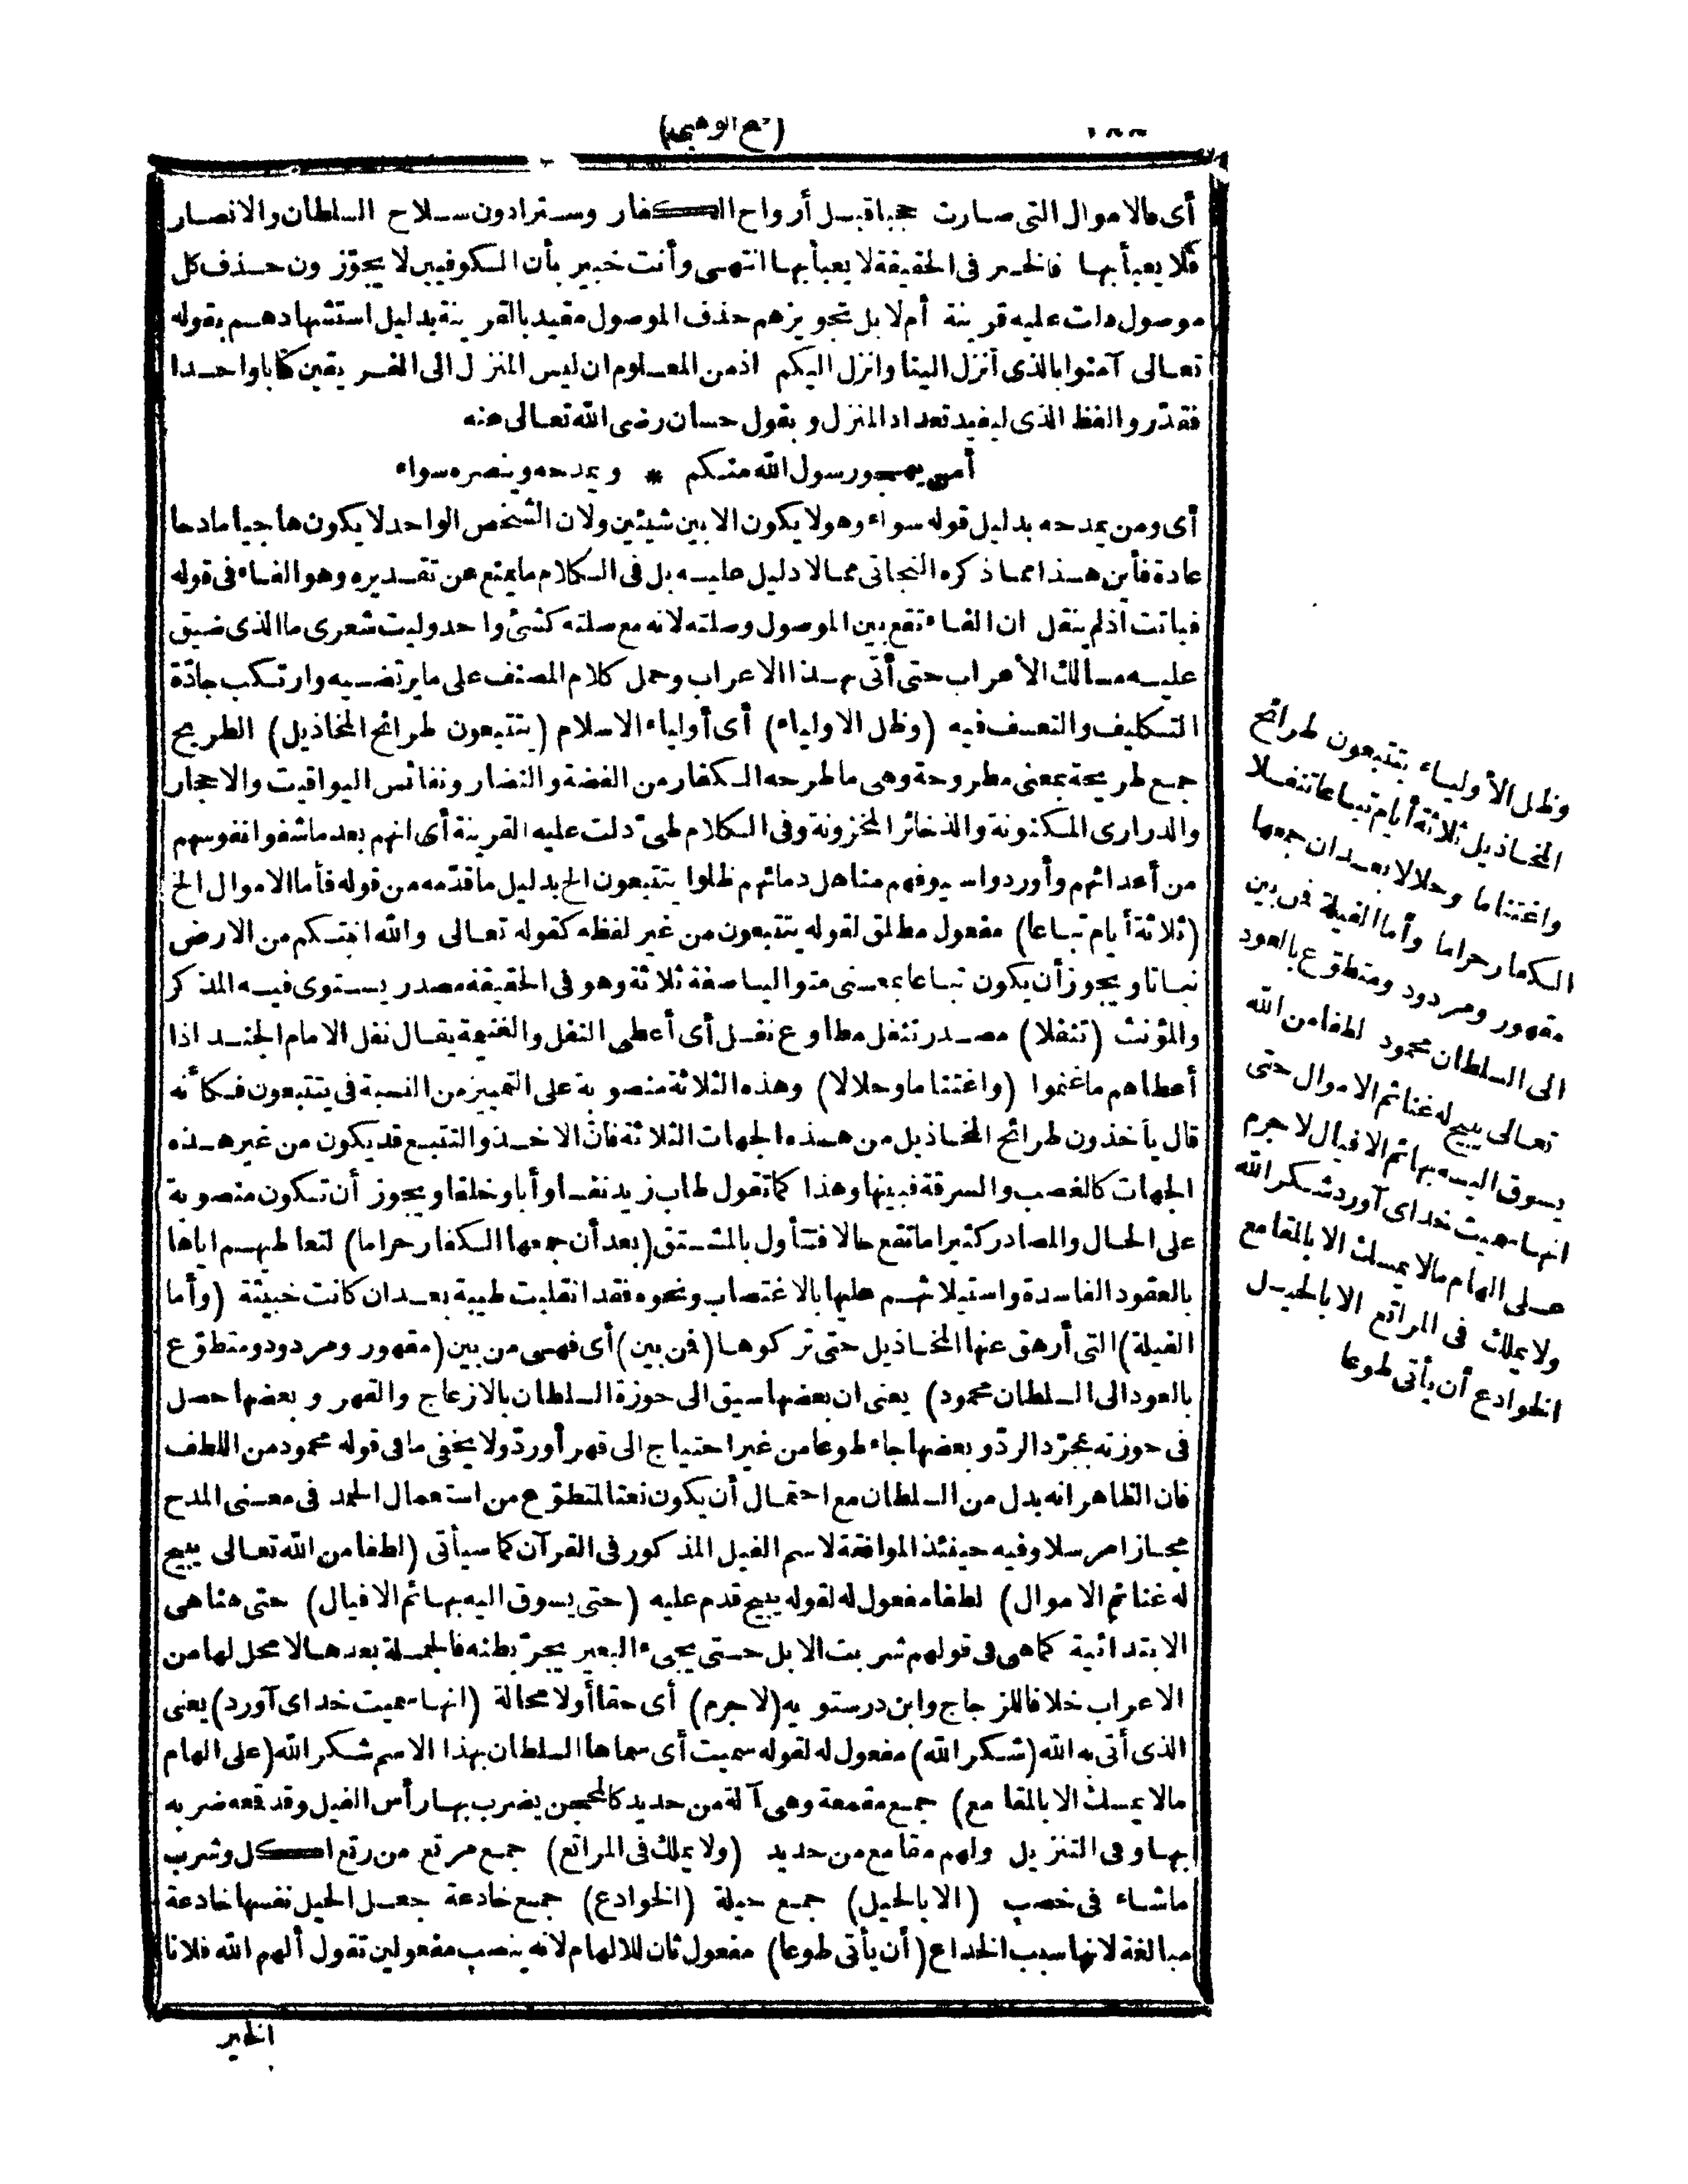 (ح الوهبي)
أى فالاموال التى صارت حجبا قبل أرواح الكفار وستراد ون سلاح السلطان والانصار
فلا يعبأ بها فالخبر فى الحقيقة لا يعبأ بها انتهى وأنت خبير بأن الكوفيين لا يجوّزون حذف كل
موصول دلت عليه قرينة أم لا بل تجويزهم حذف الموصول مقيد بالقرينة بدليل استشهادهم بقوله
تعالى آمنوا بالذى أنزل الينا وانزل اليكم اذ من المعلوم ان ليس المنزل الى الفريقين كتابا واحدا
فقدّروا لفظ الذى ليفيد تعداد المنزل وبقول حسان رضى الله تعالى عنه
أمن يهجو رسول الله منكم * ويمدحه وينصره سواء
أى ومن يمدحه بدليل قوله سواء وهو لا يكون الا بين شيئين ولان الشخص الواحد لا يكون هاجيا مادحا
عادة فأين هذا مما ذكره النجاتى مما لا دليل عليه بل فى الكلام ما يمنع عن تقديره وهو الفاء فى قوله
فباتت اذ لم ينقل ان الفاء تقع بين الموصول وصلته لانه مع صلته كشئ واحد وليت شعرى ما الذى ضيق
عليه مسالك الأعراب حتى أتى بهذا الاعراب وحمل كلام المصنف على ما يرتضيه وارتكب جادّة
التكليف والتعسف فيه (وظل الاولياء) أى أولياء الاسلام (يتتبعون طرائح المخاذيل) الطريح
جمع طريحة بمعنى مطروحة وهى ما طرحه الكفار من الفضة والنضار ونفائس اليواقيت والاحجار
والدرارى المكنونة والذخائر المخزونة وفى الكلام طىّ دلت عليه القرينة أى انهم بعد ما شفوا نفوسهم
من أعدائهم وأوردوا سيوفهم مناهل دمائهم ظلوا يتتبعون الخ بدليل ما قدّمه من قوله فأما الاموال الخ
(ثلاثة أيام تباعا) مفعول مطلق لقوله يتتبعون من غير لفظه كقوله تعالى والله انبتكم من الارض
نباتا ويجوز أن يكون تباعا بمعنى متواليا صفة ثلاثة وهو فى الحقيقة مصدر يستوى فيه المذكر
والمؤنث (تنفلا) مصدر تنفل مطاوع نفل أى أعطى النفل والغنيمة يقال نفل الامام الجند اذا
أعطاهم ما غنموا (واغتناما وحلالا) وهذه الثلاثة منصوبة على التمييز من النسبة فى يتتبعون فكأنه
قال يأخذون طرائح المخاذيل من هذه الجهات الثلاثة فانّ الاخذ والتتبع قد يكون من غير هذه
الجهات كالغصب والسرقة فبينها وهذا كما تقول طاب زيد نفسا وأبا وخلقا ويجوز أن تكون منصوبة
على الحال والمصادر كثيرا ما تقع حالا فتتأول بالمشتق (بعد أن جمعها الكفار حراما) لتعاطيهم اياها
بالعقود الفاسدة واستيلائهم عليها بالاغتصاب ونحوه فقد انقلبت طيبة بعد ان كانت خبيثة (وأما
الفيلة) التى أرهق عنها المخاذيل حتى تركوها (فن بين) أى فهى من بين (مقهور ومردود ومتطوّع
بالعود الى السلطان محمود) يعنى ان بعضها سيق الى حوزة السلطان بالازعاج والقهر وبعضها حصل
فى حوزته بمجرّد الردّ وبعضها جاء طوعا من غير احتياج الى قهر أوردّ ولا يخفى ما فى قوله محمود من اللطف
فان الظاهر انه بدل من السلطان مع احتمال أن يكون نعتا لمتطوّع من استعمال الحمد فى معنى المدح
مجازا مرسلا وفيه حينئذ الموافقة لاسم الفيل المذكور فى القرآن كما سيأتى (لطفا من الله تعالى يبيح
له غنائم الاموال) لطفا مفعول له لقوله يبيح قدم عليه (حتى يسوق اليه بهائم الافيال) حتى هنا هى
الابتدائية كما هى فى قولهم شربت الابل حتى يجىء البعير يجرّ بطنه فالجملة بعدها لا محل لها من
الاعراب خلافا للزجاج وابن درستويه (لا جرم) أى حقا أو لا محالة (انها سميت خداى آورد) يعنى
الذى أتى به الله (شكر الله) مفعول له لقوله سميت أى سماها السلطان بهذا الاسم شكر الله (على الهام
ما لا يمسك الا بالمقامع) جمع مقمعة وهى آلة من حديد كالمحجن يضرب بها رأس الفيل وقد قمعه ضربه
بها وفى التنزيل ولهم مقامع من حديد (ولا يملك فى المراتع) جمع مرتع من رتع اكل وشرب
ما شاء فى خصب (الا بالحيل) جمع حيلة (الخوادع) جمع خادعة جعل الحيل نفسها خادعة
مبالغة لانها سبب الخداع (أن يأتى طوعا) مفعول ثان للالهام لانه ينصب مفعولين تقول ألهم الله فلانا
الخير
وظل الأولياء يتتبعون طرائح
المخاذيل ثلاثة أيام تباعا تنفلا
واغتناما وحلالا بعد ان جمعها
الكفار حراما وأما الفيلة فن بين
مقهور ومردود ومتطوّع بالعود
الى السلطان محمود لطفا من الله
تعالى يبيح له غنائم الاموال حتى
يسوق اليه بهائم الافيال لا جرم
انها سميت خداى آورد شكر الله
على الهام ما لا يمسك الا بالمقامع
ولا يملك فى المراتع الا بالحيل
الخوادع أن يأتى طوعا